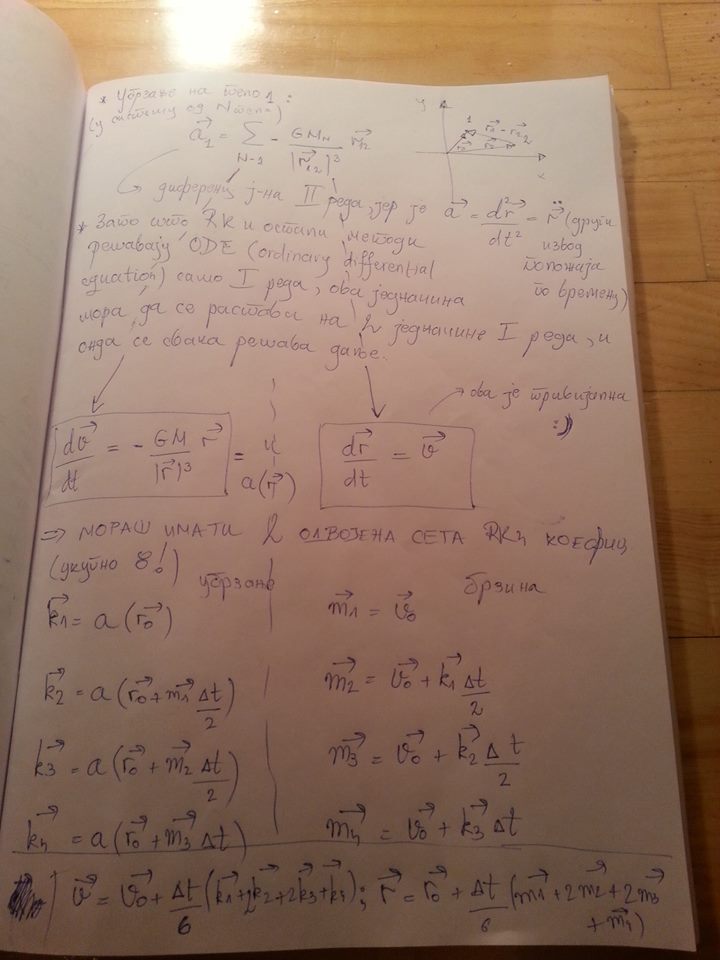 * Убрзање на тело 1:
(у систему од N тела)
a⃗₁ = Σ_{N-1} - GM_N / |r⃗₁₂|³ r⃗₁₂
y 1 r⃗₁ - r⃗₂ 2 r⃗₁ r⃗₂ x
→ диференц. ј-на II реда, јер је a⃗ = d²r⃗/dt² = r⃗̈ (други
извод
положаја
по времену)
* Зато што RK и остали методи
решавају ODE (ordinary differential
equation) само I реда, ова једначина
мора да се растави на 2 једначине I реда, и
онда се свака решава даље.
→ ова је тривијална
:))
dv⃗/dt = - GM/|r⃗|³ r⃗ = a(r⃗) и dr⃗/dt = v⃗
⇒ МОРАШ ИМАТИ 2 ОДВОЈЕНА СЕТА RK4 КОЕФИЦ
(укупно 8!)
убрзање брзина
k⃗1 = a(r⃗₀) m⃗1 = v⃗₀
k⃗2 = a(r⃗₀ + m⃗1 Δt/2) m⃗2 = v⃗₀ + k⃗1 Δt/2
k⃗3 = a(r⃗₀ + m⃗2 Δt/2) m⃗3 = v⃗₀ + k⃗2 Δt/2
k⃗4 = a(r⃗₀ + m⃗3 Δt) m⃗4 = v⃗₀ + k⃗3 Δt
v⃗ = v⃗₀ + Δt/6 (k⃗1 + 2k⃗2 + 2k⃗3 + k⃗4); r⃗ = r⃗₀ + Δt/6 (m⃗1 + 2m⃗2 + 2m⃗3
+ m⃗4)